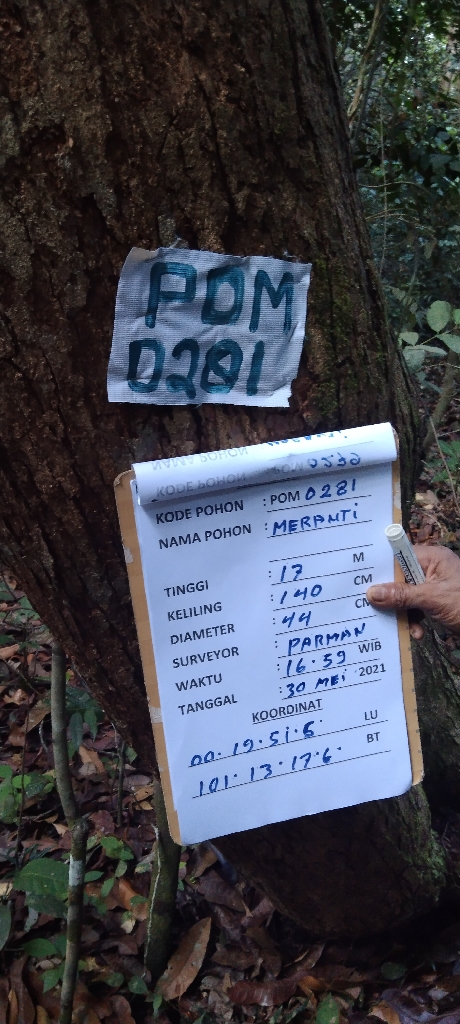 POM
0281
NAMA POHON
KODE POHON
KODE POHON : POM 0281
NAMA POHON : MERANTI
TINGGI : 17 M
KELILING : 140 CM
DIAMETER : 44 CM
SURVEYOR : PARMAN
WAKTU : 16.59 WIB
TANGGAL : 30 MEI 2021
KOORDINAT
00.19.51.6 LU
101.13.17.6 BT